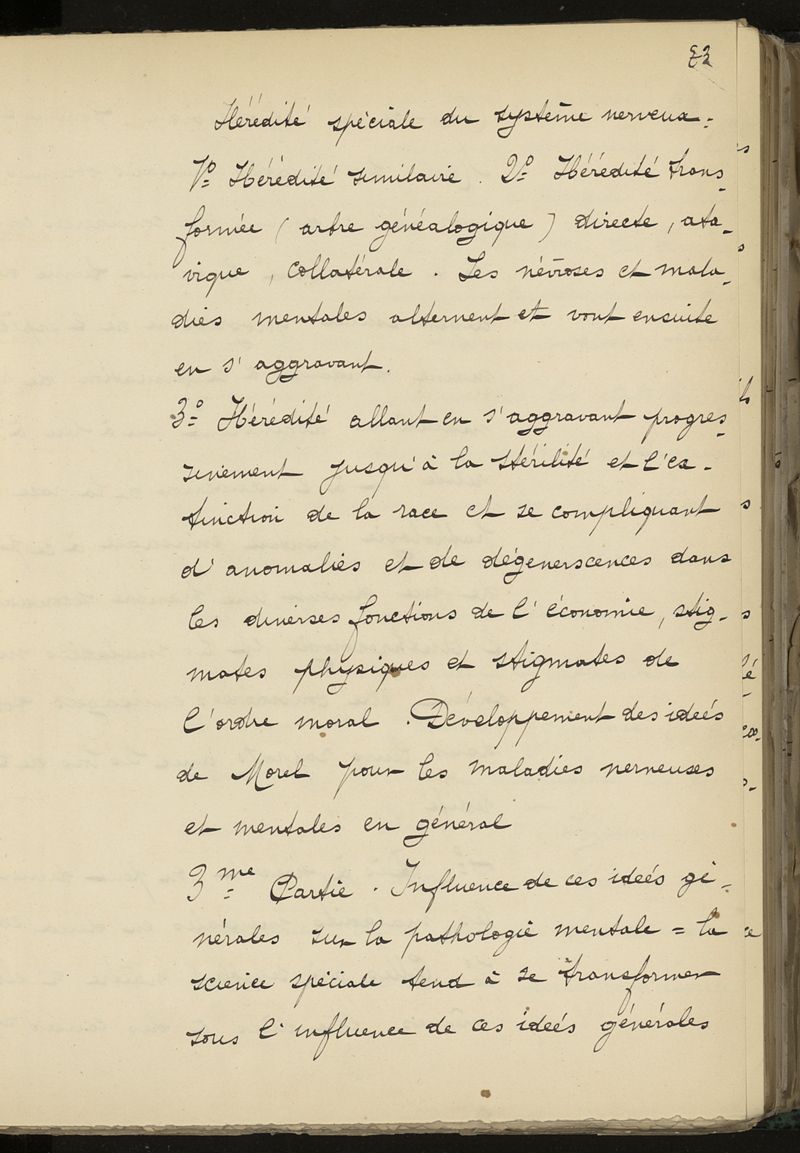 Hérédité spéciale du système nerveux.
1º Hérédité similaire. 2º Hérédité trans-
formée (arbre généalogique) directe, ata-
vique, collatérale. Les névroses et mala-
dies mentales alternent et vont ensuite
en s'aggravant.
3º Hérédité allant en s'aggravant progres-
sivement jusqu'à la stérilité et l'ex-
tinction de la race et se compliquant
d'anomalies et de dégenerscences dans
les diverses fonctions de l'économie, stig-
mates physiques et stigmates de
l'ordre moral. Développement des ideés
de Morel pour les maladies nerveuses
et mentales en général
3me Partie. Influence de ces ideés gé-
nérales sur la pathologie mentale = la
science spéciale tend à se transformer
sous l'influence de ces ideés générales